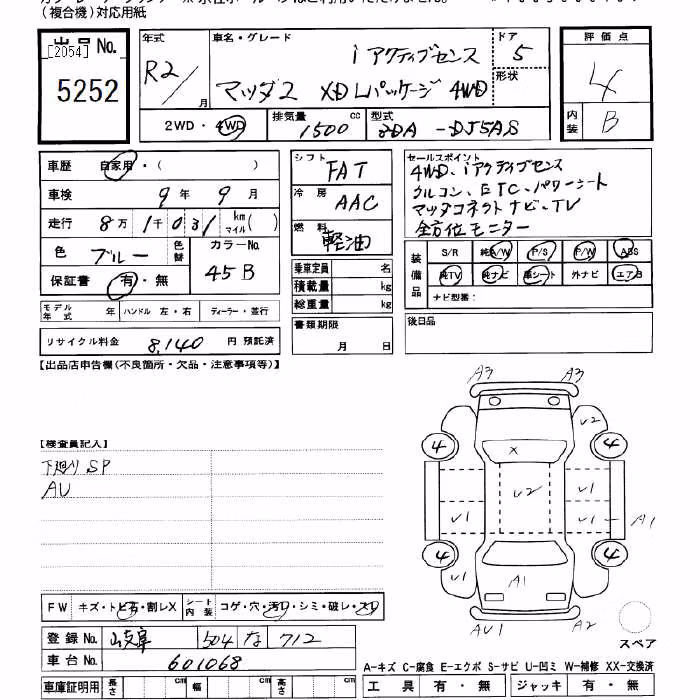 (複合機)対応用紙
出品No.
[2054]
5252
年式
R2/
月
車名・グレード
i アクティブセンス
マツダ2 XD Lパッケージ 4WD
ドア
5
形状
評価点
4
内装
B
2WD・4WD
排気量
1500
cc
型式
3DA-DJ5AS
車歴 自家用・( )
車検 9年 9月
走行 8万 1千 0 3 1 km マイル( )
色 ブルー 色替
カラーNo.
45B
保証書 有・無
モデル年式 年 ハンドル 左・右 ディーラー・並行
リサイクル料金 8,140 円 預託済
シフト FAT
冷房 AAC
燃料 軽油
乗車定員 名
積載量 kg
総重量 kg
書類期限
月 日
セールスポイント
4WD、iアクティブセンス
クルコン、ETC、パワーシート
マツダコネクトナビ、TV
全方位モニター
装備品
S/R 純A/W P/S P/W ABS
純TV 純ナビ 革シート 外ナビ エアB
ナビ型番:
後日品
【出品店申告欄(不良箇所・欠品・注意事項等)】
【検査員記入】
下廻りSP
AU
FW キズ・トビ石・割レX
シート内装 コゲ・穴・汚レ・シミ・破レ・スレ
登録No. 504 な 712
車台No. 601068
車庫証明用 長さ cm 幅 cm 高さ cm
A3 A3
U2
4 4
X
U1 U2 U1
U1 U1 A1
4 4
A1
AU1 A2
スペア
A-キズ C-腐食 E-エクボ S-サビ U-凹ミ W-補修 XX-交換済
工具 有・無 ジャッキ 有・無